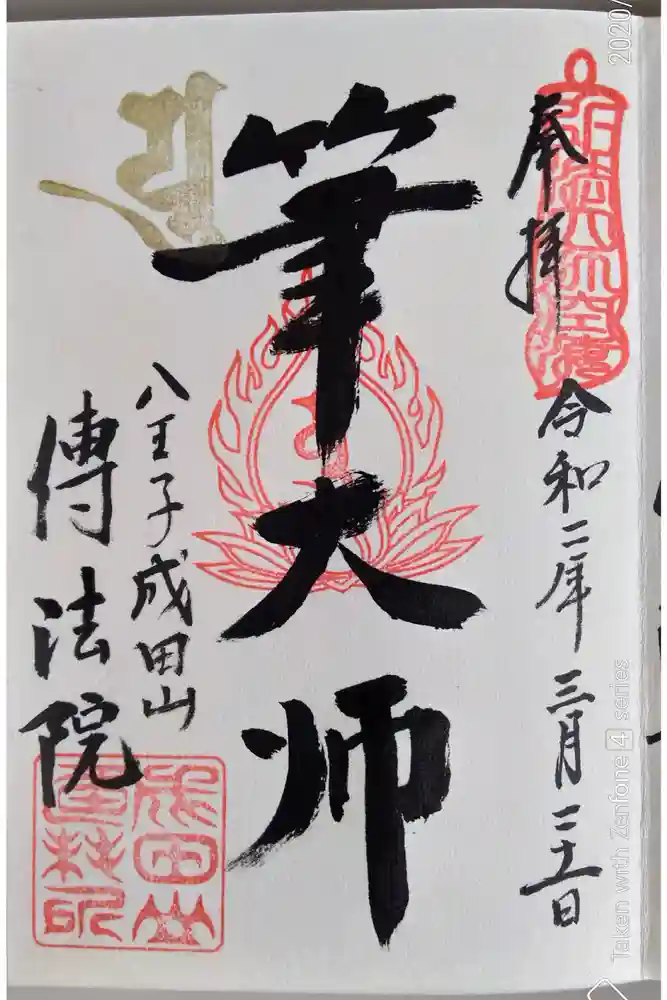 奉拝
令和二年 三月二十一日
筆大師
八王子成田山
傳法院
成田山
2020/
Taken with Zenfone 4 series